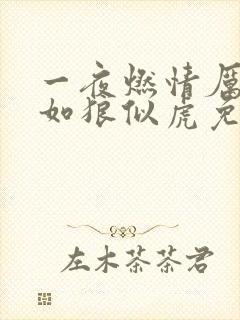 一夜燃情厉
如狼似虎免
左木茶茶君